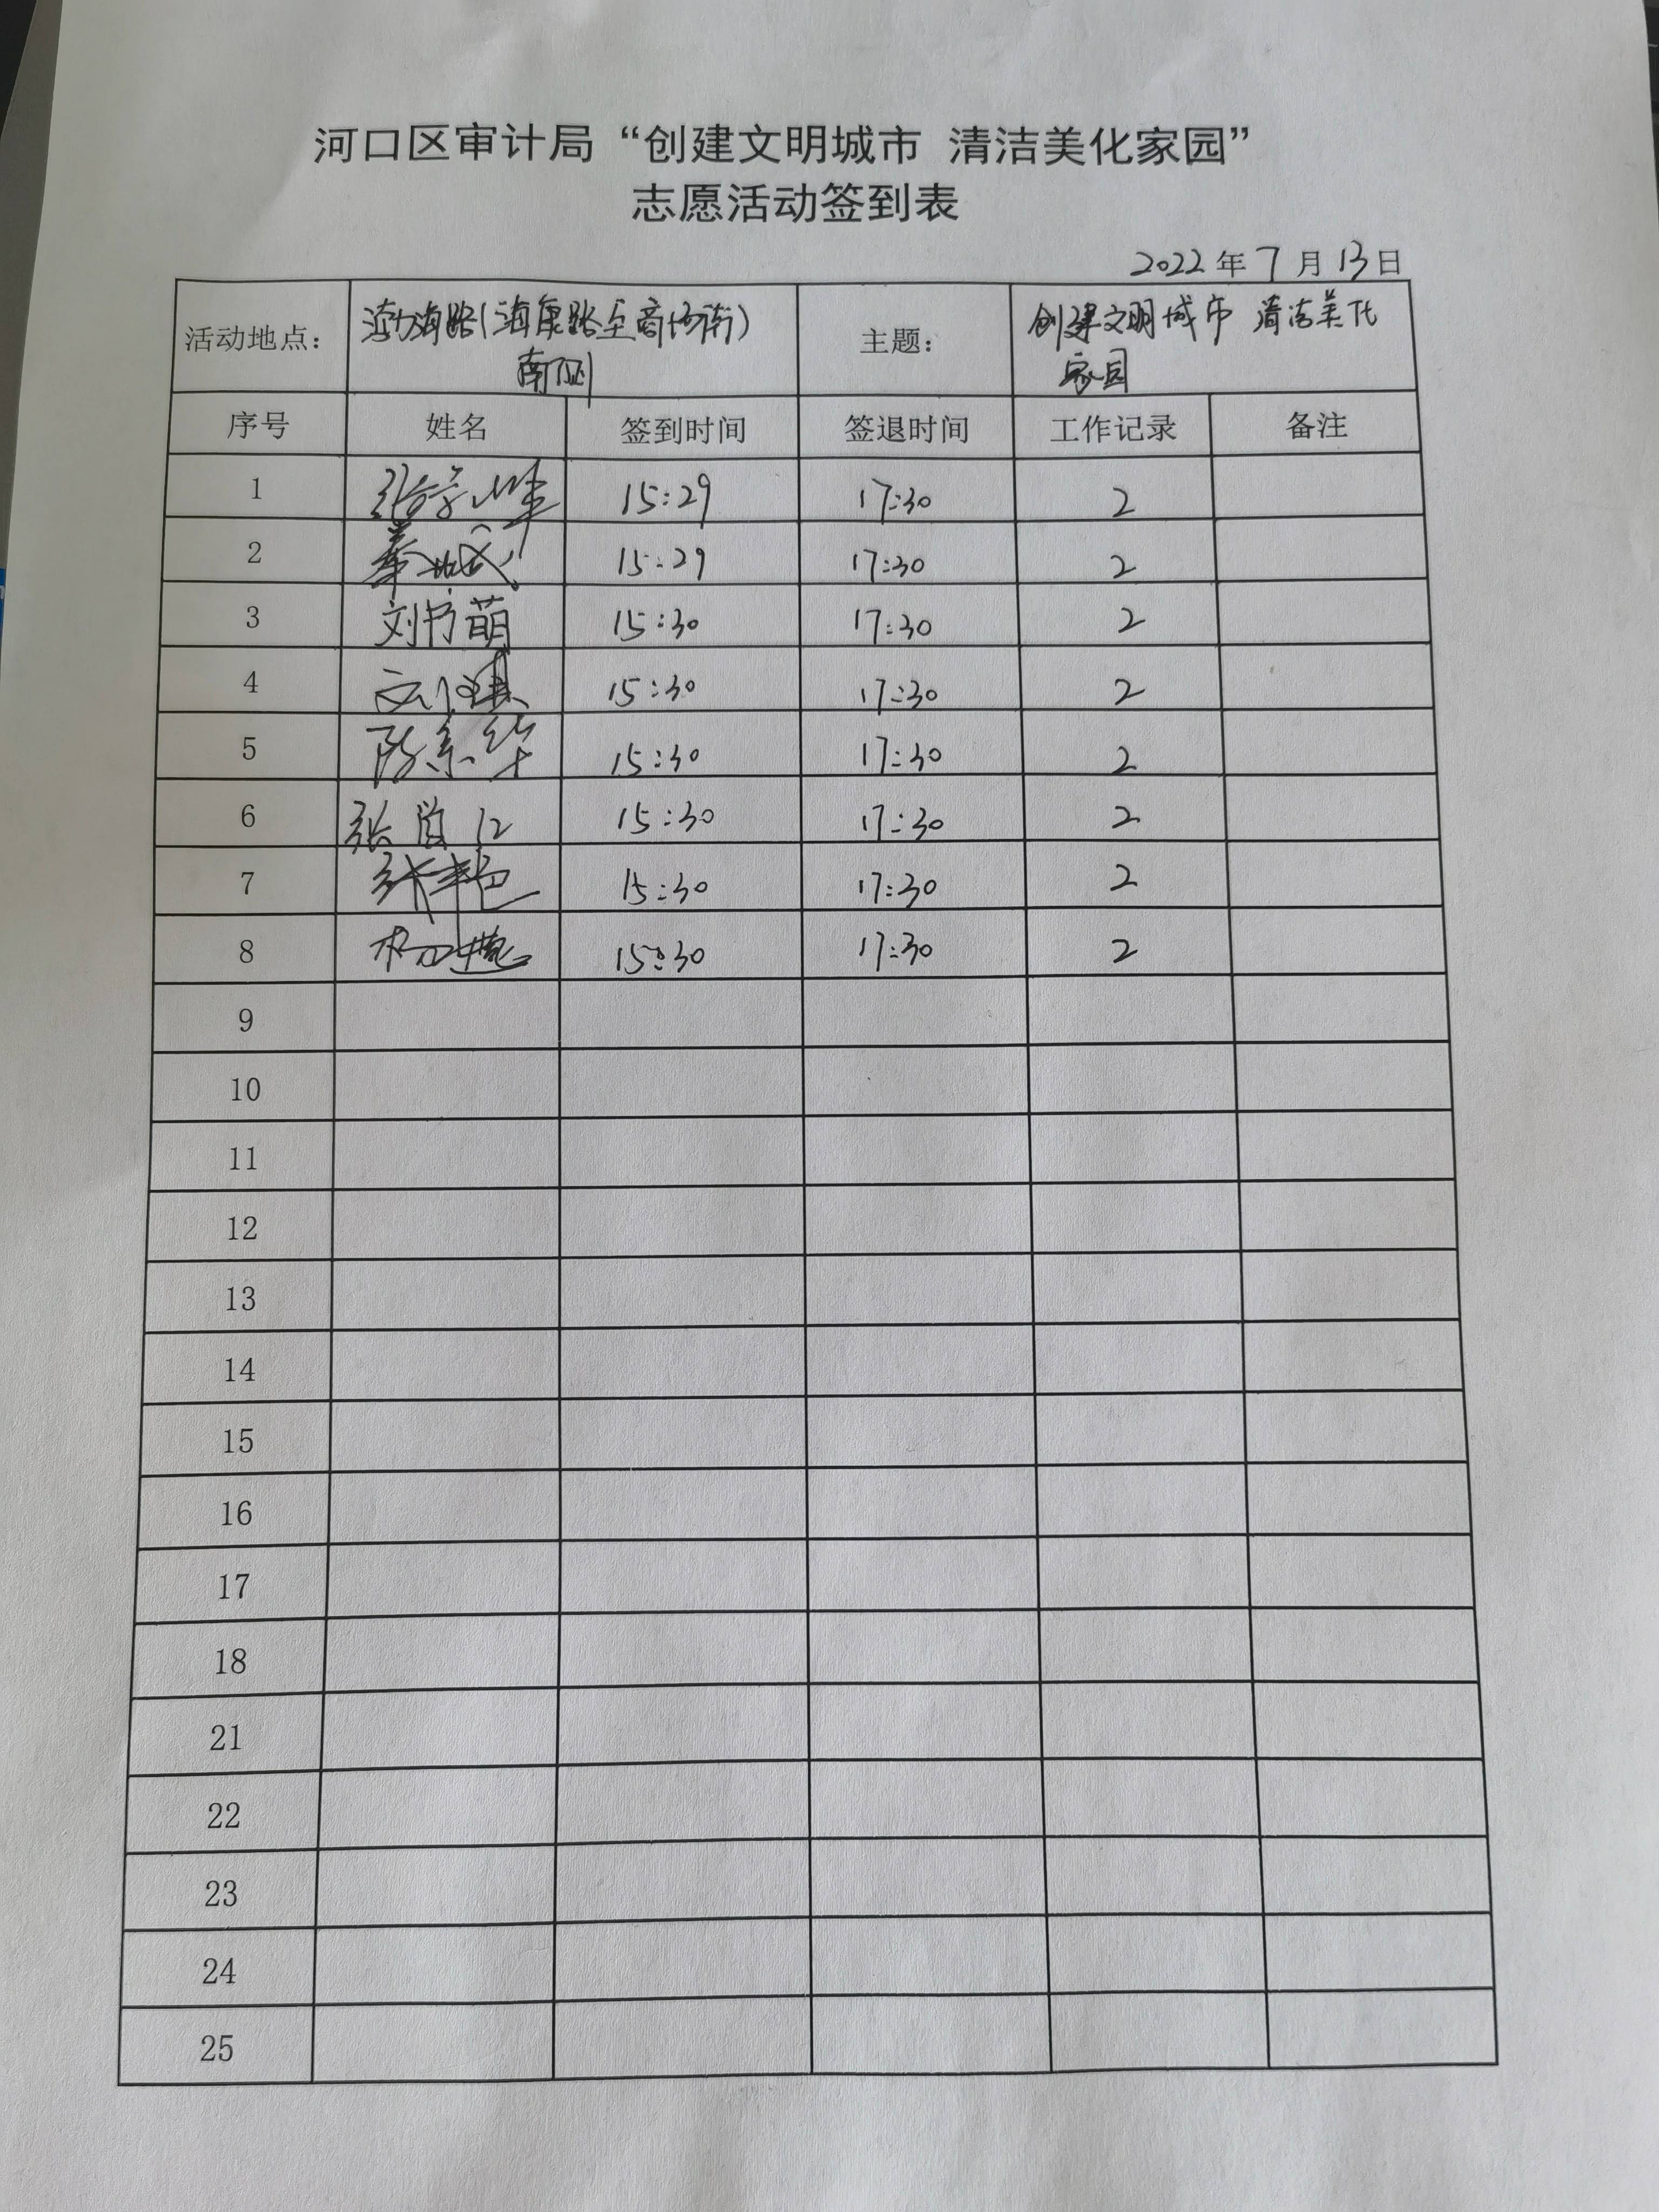 河口区审计局“创建文明城市 清洁美化家园”
志愿活动签到表
2022年7月13日
活动地点： 渤海路(海康路至商场街) 主题： 创建文明城市 清洁美化
南侧 家园
序号 姓名 签到时间 签退时间 工作记录 备注
1 15:29 17:30 2
2 15:29 17:30 2
3 刘书萌 15:30 17:30 2
4 15:30 17:30 2
5 15:30 17:30 2
6 15:30 17:30 2
7 15:30 17:30 2
8 15:30 17:30 2
9
10
11
12
13
14
15
16
17
18
21
22
23
24
25